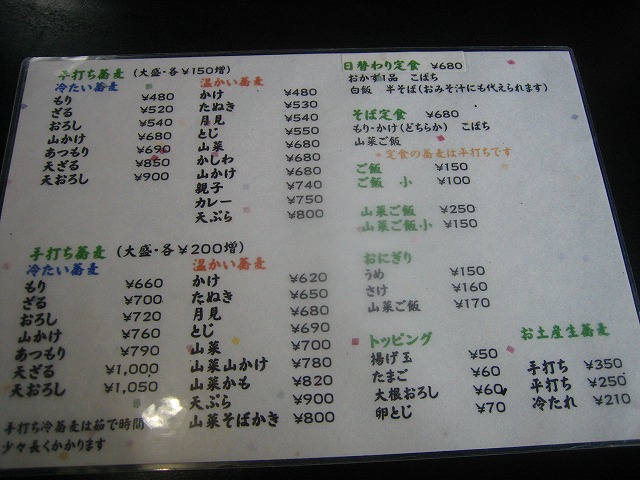 平打ち蕎麦 (大盛・各¥150増)
冷たい蕎麦
もり ¥480
ざる ¥520
おろし ¥540
山かけ ¥680
あつもり ¥690
天ざる ¥850
天おろし ¥900
温かい蕎麦
かけ ¥480
たぬき ¥530
月見 ¥540
とじ ¥550
山菜 ¥680
かしわ ¥680
山かけ ¥680
親子 ¥740
カレー ¥750
天ぷら ¥800
手打ち蕎麦 (大盛・各¥200増)
冷たい蕎麦
もり ¥660
ざる ¥700
おろし ¥720
山かけ ¥760
あつもり ¥790
天ざる ¥1,000
天おろし ¥1,050
手打ち冷蕎麦は茹で時間
少々長くかかります
温かい蕎麦
かけ ¥620
たぬき ¥650
月見 ¥680
とじ ¥690
山菜 ¥700
山菜山かけ ¥780
山菜かも ¥820
天ぷら ¥900
山菜そばかき ¥800
日替わり定食 ¥680
おかず1品 こばち
白飯 半そば(おみそ汁にも代えられます)
そば定食 ¥680
もり・かけ(どちらか) こばち
山菜ご飯
*定食の蕎麦は平打ちです
ご飯 ¥150
ご飯 小 ¥100
山菜ご飯 ¥250
山菜ご飯小 ¥150
おにぎり
うめ ¥150
さけ ¥160
山菜ご飯 ¥170
トッピング
揚げ玉 ¥50
たまご ¥60
大根おろし ¥60
卵とじ ¥70
お土産生蕎麦
手打ち ¥350
平打ち ¥250
冷たれ ¥210